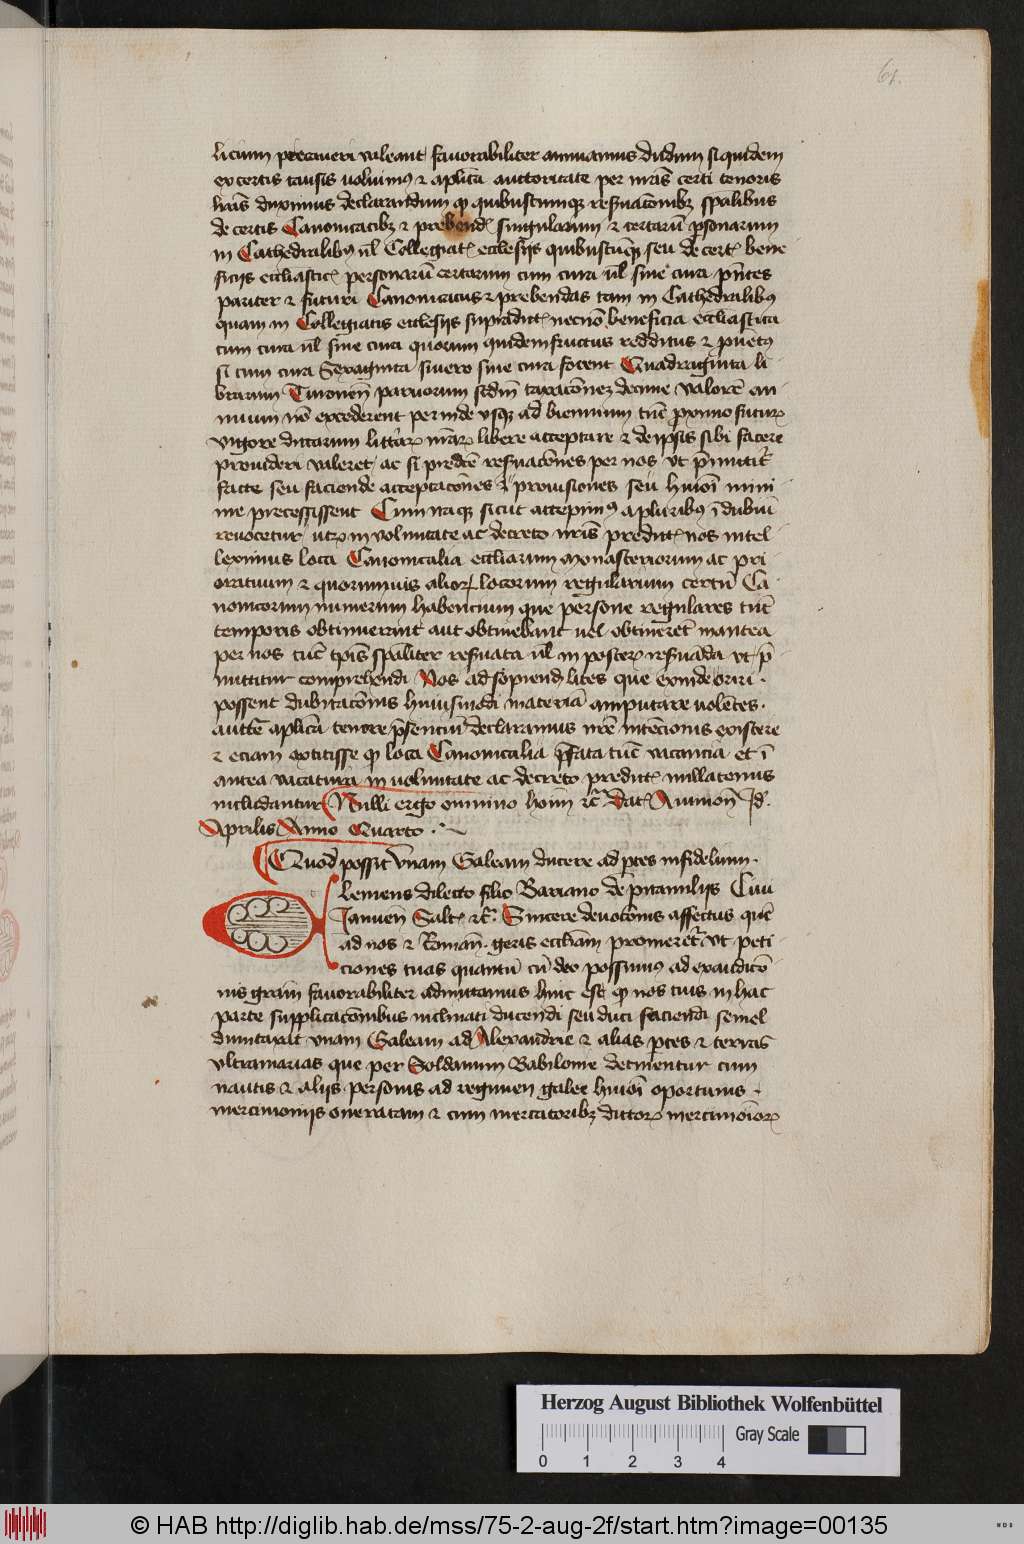 61.
licium precaueri valeant fauorabiliter annuamus dudum siquidem
ex certis causis voluimꝰ ⁊ aplica auctoritate per nr̄as certi tenoris
lr̄as duximus declarandum ꝙ quibuscumqꝫ reẜuac̄onibꝫ sp̄alibus
de certis Canonicatibꝫ ⁊ prebend̄ singularum ⁊ certarū ꝑsonarum
in Cathedralibꝰ vl̄ Collegiat̄ ecclesijs quibuscūqꝫ seu de cert̄ bene
ficijs eccl̄iastic̄ personarū certarum cum cura vl̄ sine cura
pariter ⁊ futuri Canonicatus ⁊ prebendas tam in Cathedralibꝰ
quam in Collegiatis ecclesijs supradict̄ necnō beneficia eccl̄iastica
cum cura vl̄ sine cura quorum quidem fructus redditus ⁊ ꝓuētꝰ
si cum cura Sexaginta si vero sine cura forent Quadraginta li
brarum Turonen̄ paruorum scd̄m taxac̄onem decime valorē an
nuum nō excederent perinde vsqꝫ ad biennium tūc proximo futur̄
vigore dictarum litt̄ar̄ nr̄ar̄ libere acceptare ⁊ de ipsis sibi facere
prouideri valeret ac si predcē reẜuac̄ones per nos vt p̄mittit̄
facte seu faciende acceptac̄ones ⁊ prouisiones seu huiōi mini
me precessissent Cum itaqꝫ sicut accepimꝰ a pluribꝰ ī dubiū
reuocetur vtrum voluntate ac decreto nr̄is predict̄ nos intel
leximus loca Canonicalia eccl̄iarum Monasteriorum ac pri
oratuum ⁊ quorumuis alior̄ locorum regularium certū Ca
nonicorum numerum habencium que persone regulares tūc
temporis obtinuerunt aut obtinebant vel obtinerēt inantea
per nos tūc tp̄is sp̄aliter reẜuata vl̄ in poster̄ reẜuāda vt p̄
mittitur comprehendi Nos ad sopiend̄ lites que exinde oriri
possent dubitac̄onis huiusmodi materiā amputare volētes
auctē aplicā tenore p̄senciū declaramus nr̄e intēcionis existere
⁊ eciam extitisse ꝙ loca Canonicalia p̄fata tūc vacancia et ī
antea vacatura in voluntate ac decreto predict̄ nullatenus
includantur Nulli ergo omnino hoīm ⁊c̄ Dat̄ Auinion̄ Jd̄.
Aprilis Anno Quarto
Quod possit vnam Galeam ducere ad ꝑtes infidelium
Clemens dilecto filio Ciui
Januen̄ Salt̄ ⁊c̄. Sincere deuoc̄onis affectus quē
ad nos ⁊ Roman̄ geris eccl̄iam promeret̄ vt peti
ciones tuas quantū cū deo possumus ad exaudicō
nis grām fauorabiliter admittamus hinc est ꝙ nos tuis in hac
parte supplicac̄onibus inclinati ducendi seu duci faciendi semel
dumtaxat vnam Galeam ad Alexandrie ⁊ alias ꝑtes ⁊ terras
vltramarinas que per Soldanum Babilonie detinentur cum
nautis ⁊ alijs personis ad regimen galee huiōi oportunis
mercimonijs oneratam ⁊ cum mercatoribꝫ dictor̄ mercimōior̄
Herzog August Bibliothek Wolfenbüttel
0 1 2 3 4 Gray Scale
© HAB http://diglib.hab.de/mss/75-2-aug-2f/start.htm?image=00135